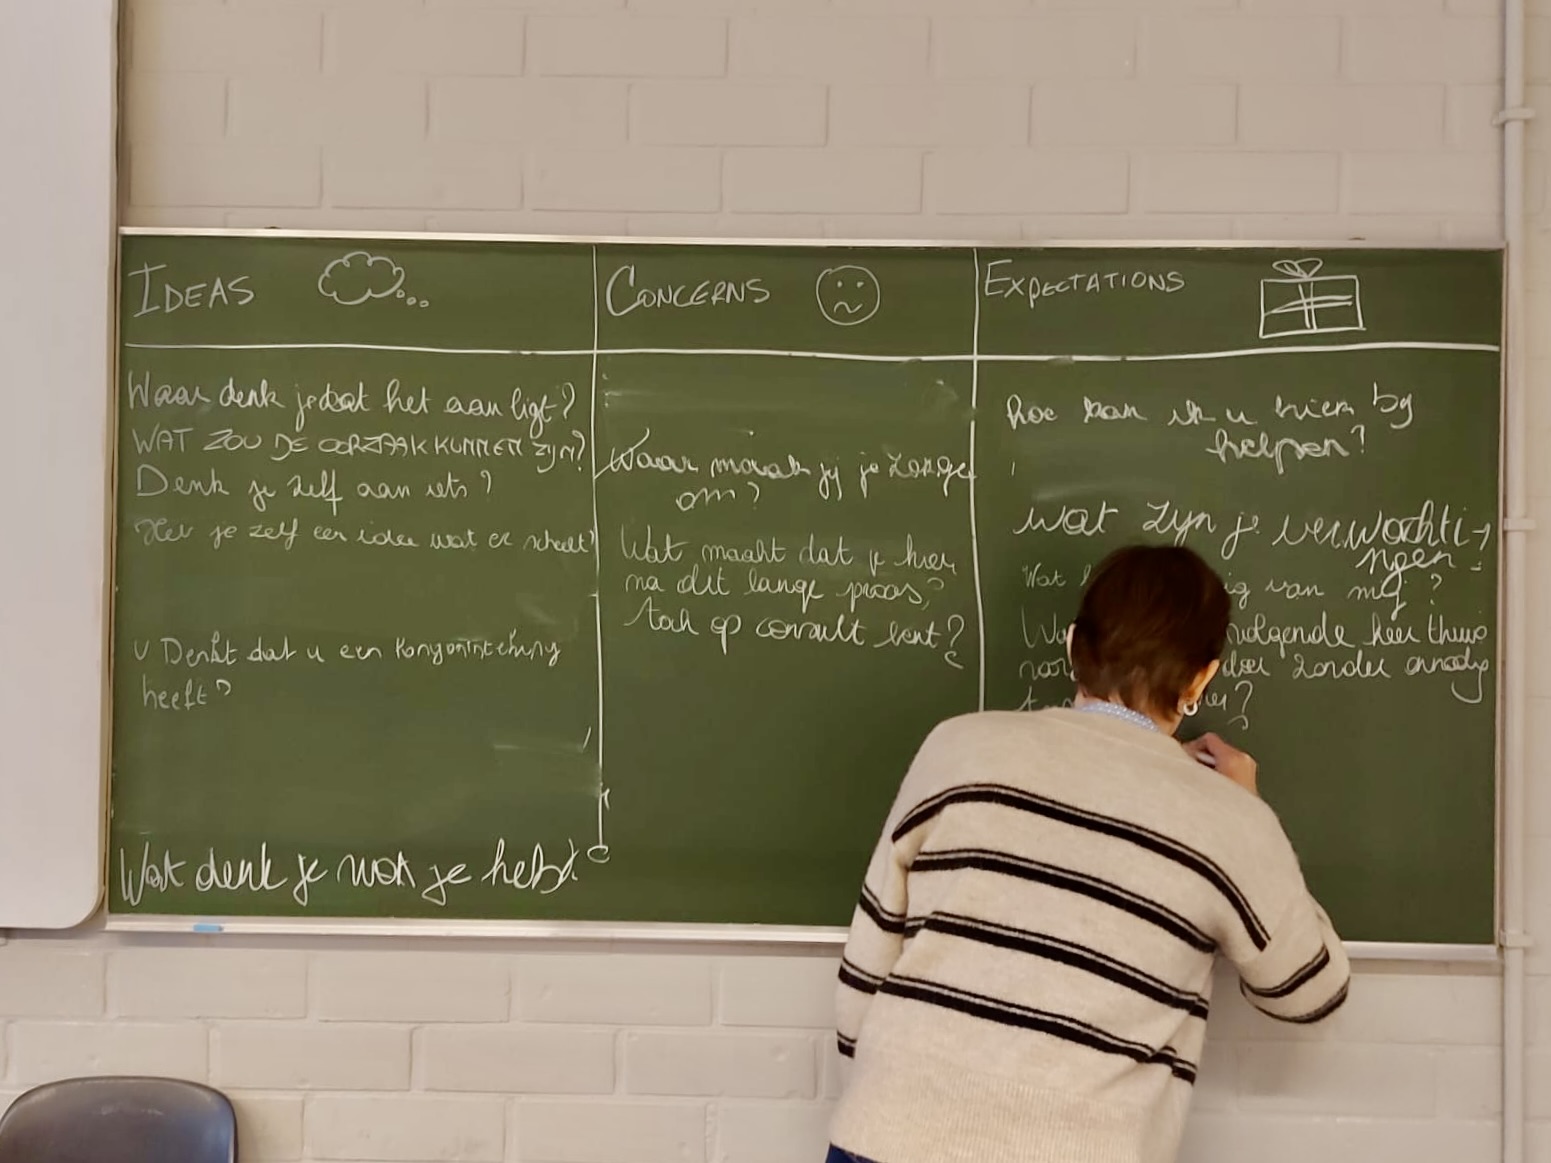 IDEAS
Waar denk je dat het aan ligt?
WAT ZOU DE OORZAAK KUNNEN ZIJN?
Denk je zelf aan iets?
Heb je zelf een idee wat er scheelt?
U Denkt dat u een longontsteking
heeft?
Wat denk je wat je hebt?
CONCERNS
Waar maak jij je zorgen
om?
Wat maakt dat je hier
na dit lange proces,
toch op consult bent?
EXPECTATIONS
hoe kan ik u hier bij
helpen?
wat zijn je verwachti-
ngen?
Wat van mij?
volgende keer thuis
zonder onnodig